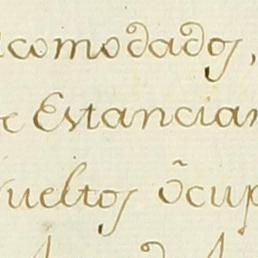 acomodados,
e Estancian
vueltos õcup